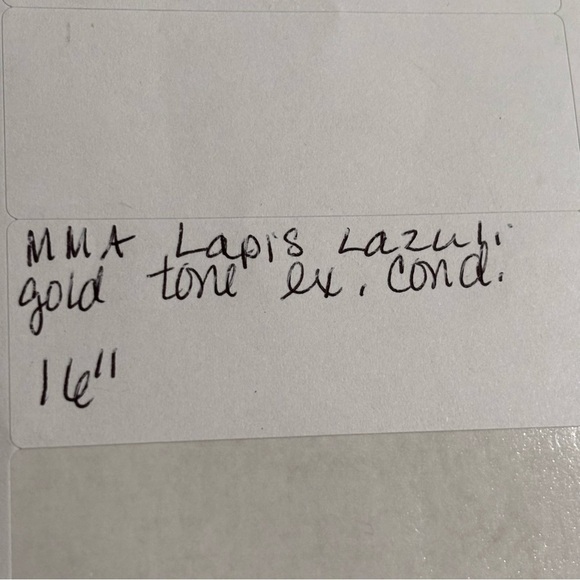 MMA Lapis Lazuli
gold tone ex. cond.
16"